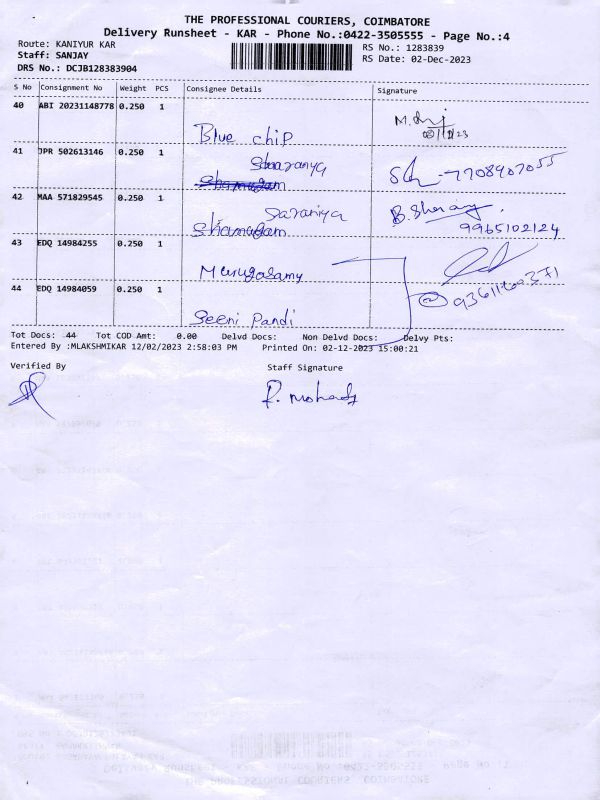 THE PROFESSIONAL COURIERS, COIMBATORE
Delivery Runsheet - KAR - Phone No.:0422-3505555 - Page No.:4
Route: KANIYUR KAR
RS No.: 1283839
Staff: SANJAY
RS Date: 02-Dec-2023
DRS No.: DCJB128383904
S No Consignment No Weight PCS Consignee Details Signature
40 ABI 20231148778 0.250 1
Blue chip
41 JPR 502613146 0.250 1
7708407055
42 MAA 571829545 0.250 1
Saraniya
B. Sheray
9965102124
43 EDQ 14984255 0.250 1
Murugasamy
44 EDQ 14984059 0.250 1
Seeni Pandi
Tot Docs: 44 Tot COD Amt: 0.00 Delvd Docs: Non Delvd Docs: Delvy Pts:
Entered By :MLAKSHMIKAR 12/02/2023 2:58:03 PM Printed On: 02-12-2023 15:00:21
Verified By Staff Signature